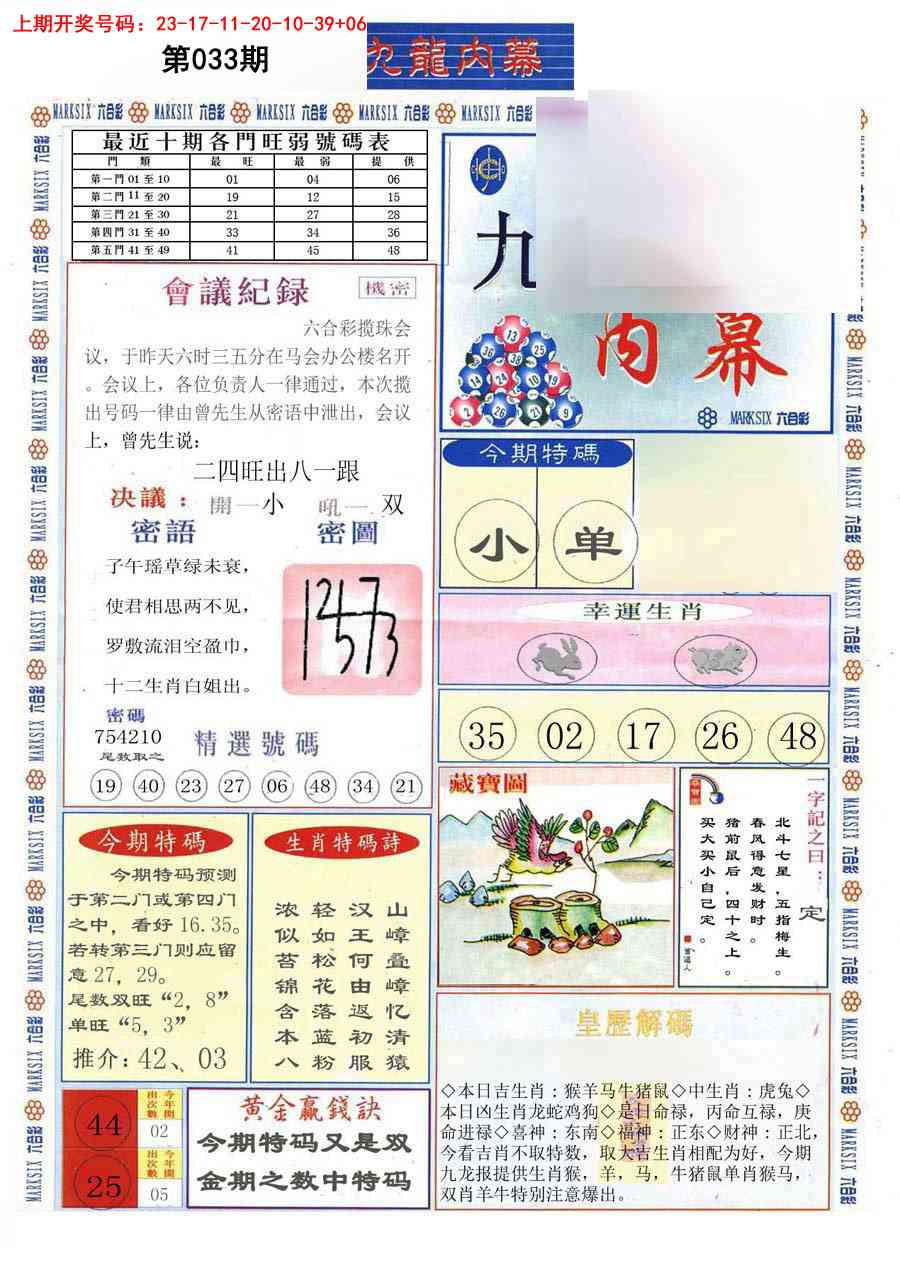 上期开奖号码：23-17-11-20-10-39+06
第033期
九龍内幕
MARKSIX 六合彩 MARKSIX 六合彩 MARKSIX 六合彩 MARKSIX 六合彩 MARKSIX 六合彩
最近十期各門旺弱號碼表
門 類 最 旺 最 弱 提 供
第一門 01 至 10 01 04 06
第二門 11 至 20 19 12 15
第三門 21 至 30 21 27 28
第四門 31 至 40 33 34 36
第五門 41 至 49 41 45 48
會議紀録
機密
六合彩揽珠会
议，于昨天六时三五分在马会办公楼名开
。会议上，各位负责人一律通过，本次揽
出号码一律由曾先生从密语中泄出，会议
上，曾先生说：
二四旺出八一跟
决議：開一小 吼一双
密語
密圖
子午瑶草绿未衰，
使君相思两不见，
罗敷流泪空盈巾，
十二生肖白姐出。
密碼
754210
尾数取之
精選號碼
19 40 23 27 06 48 34 21
九
内幕
MARKSIX 六合彩
今期特碼
小 单
幸運生肖
35 02 17 26 48
藏寶圖
一字記之曰：定
北斗七星，五指梅生。
春风得意发财时。
猪前鼠后，四十之上。
买大买小自已定。
今期特碼
今期特码预测
于第二门或第四门
之中，看好16.35。
若转第三门则应留
意27，29。
尾数双旺“2，8”
单旺“5，3”
推介：42、03
生肖特碼詩
山嶂叠嶂忆清猿
汉王何由返初服
轻如松花落蓝粉
浓似苔锦含本八
44
今年開出次數
02
25
今年開出次數
05
黄金赢錢訣
今期特码又是双
金期之数中特码
皇歷解碼
◇本日吉生肖：猴羊马牛猪鼠◇中生肖：虎兔◇
本日凶生肖龙蛇鸡狗◇是日命禄，丙命互禄，庚
命进禄◇喜神：东南◇福神：正东◇财神：正北，
今看吉肖不取特数，取大吉生肖相配为好，今期
九龙报提供生肖猴，羊，马，牛猪鼠单肖猴马，
双肖羊牛特别注意爆出。